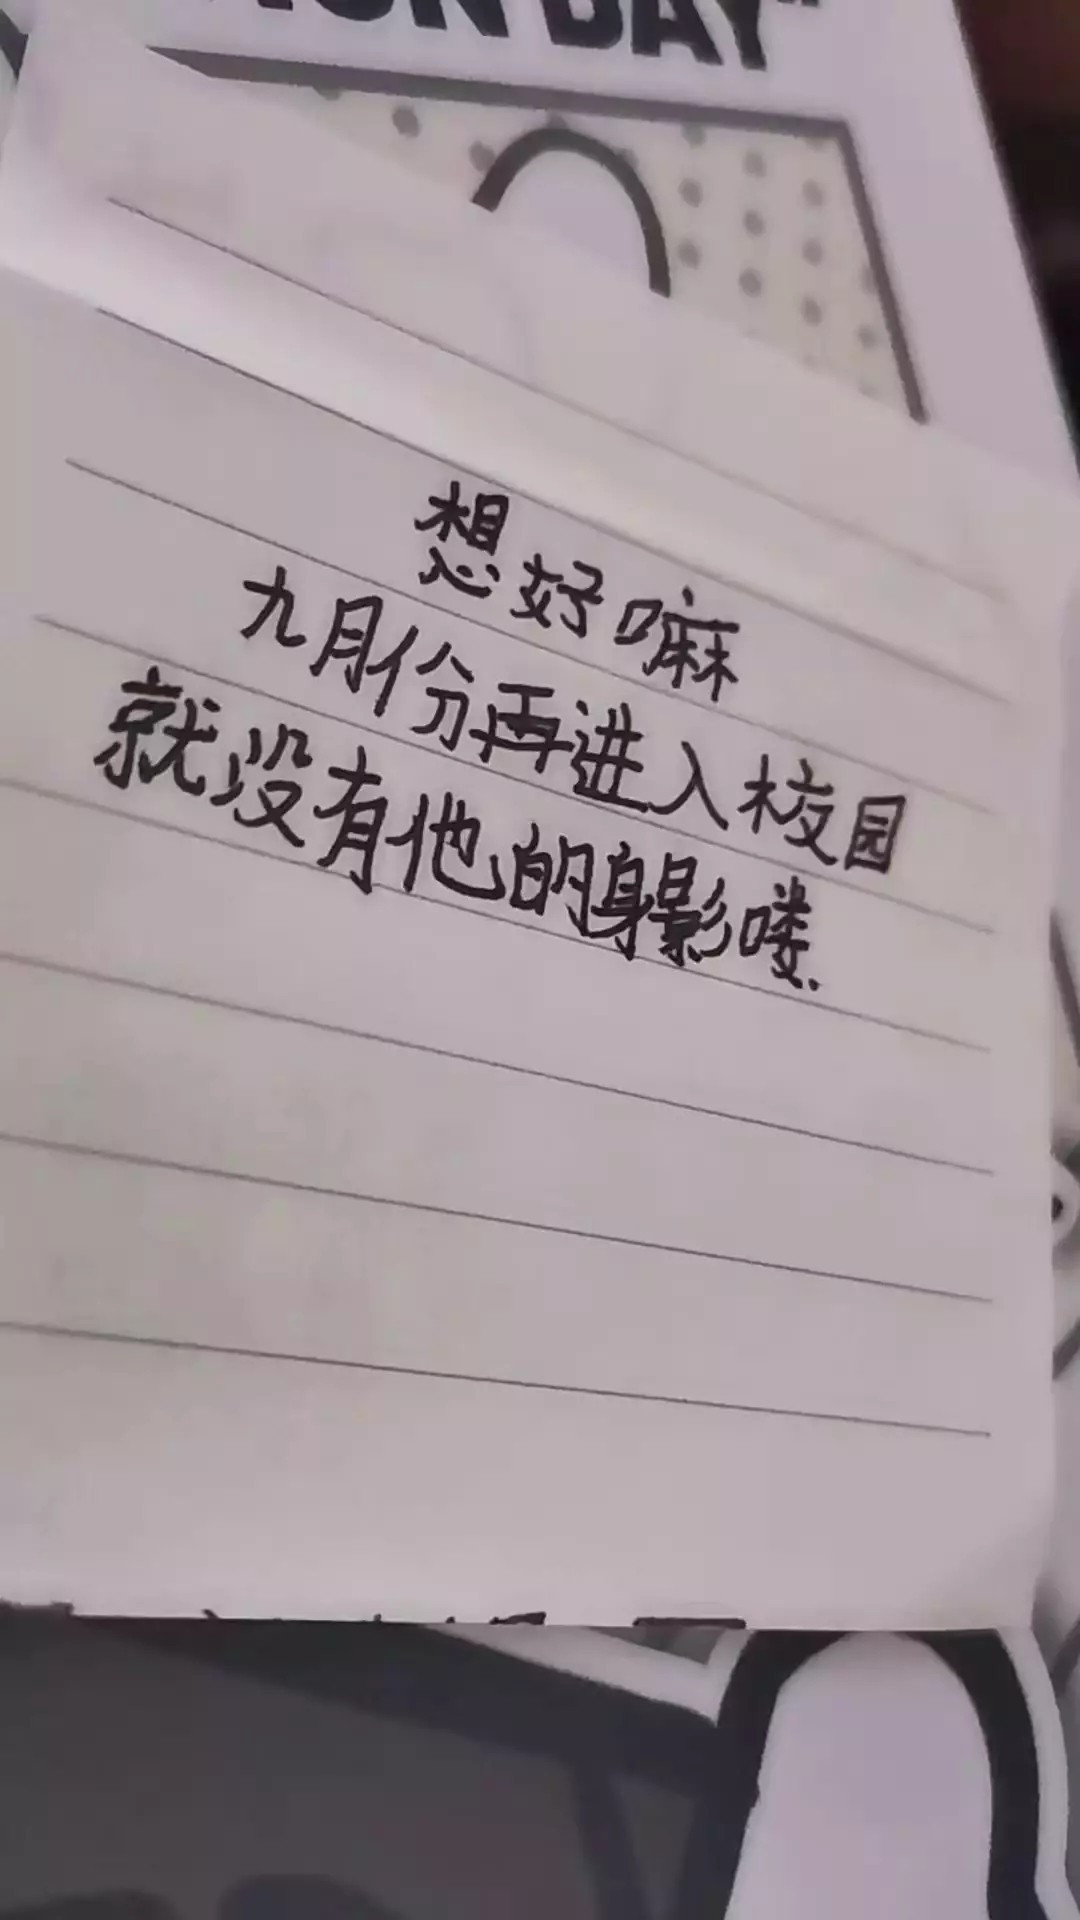 DAY"
想好嘛
九月份再进入校园
就没有他的身影喽.